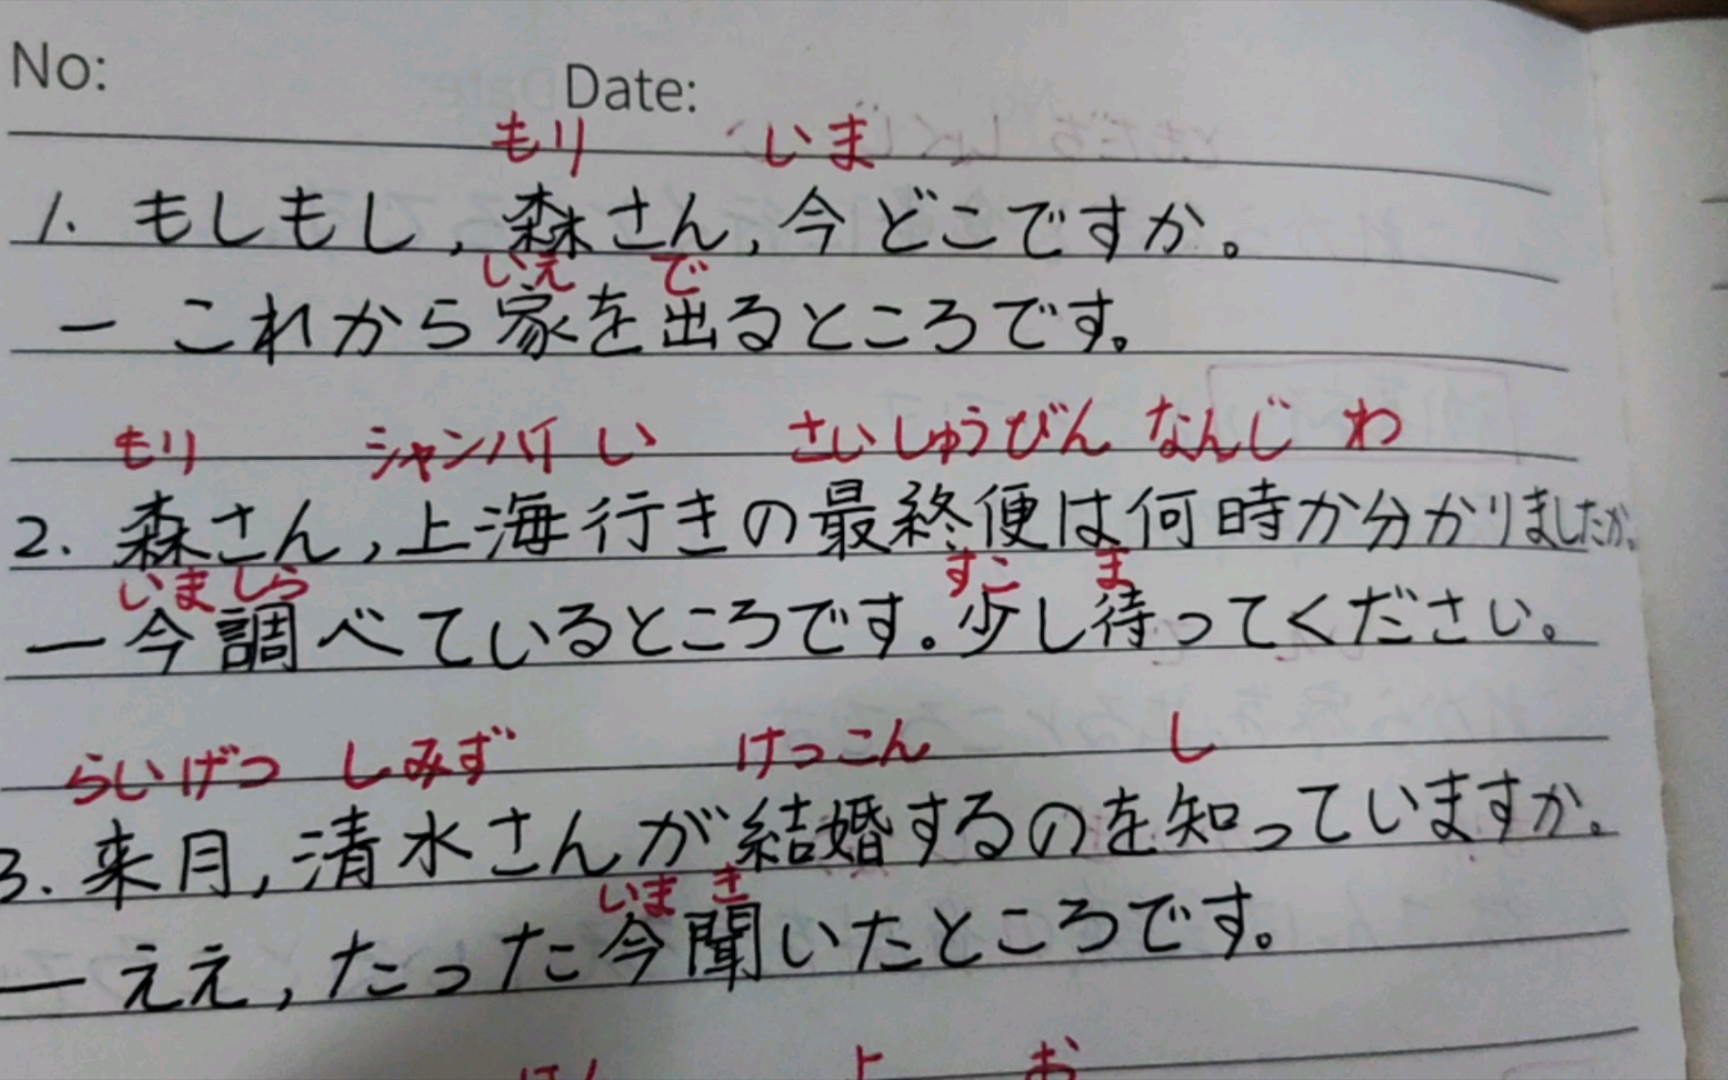 No: Date:
もり いま
1. もしもし,森さん,今どこですか。
いえ で
ー これから家を出るところです。
もり シャンハイ い さいしゅうびん なんじ わ
2. 森さん,上海行きの最終便は何時か分かりましたか。
いま しら すこ ま
ー今調べているところです。少し待ってください。
らいげつ しみず けっこん し
3. 来月,清水さんが結婚するのを知っていますか。
いま き
ーええ,たった今聞いたところです。